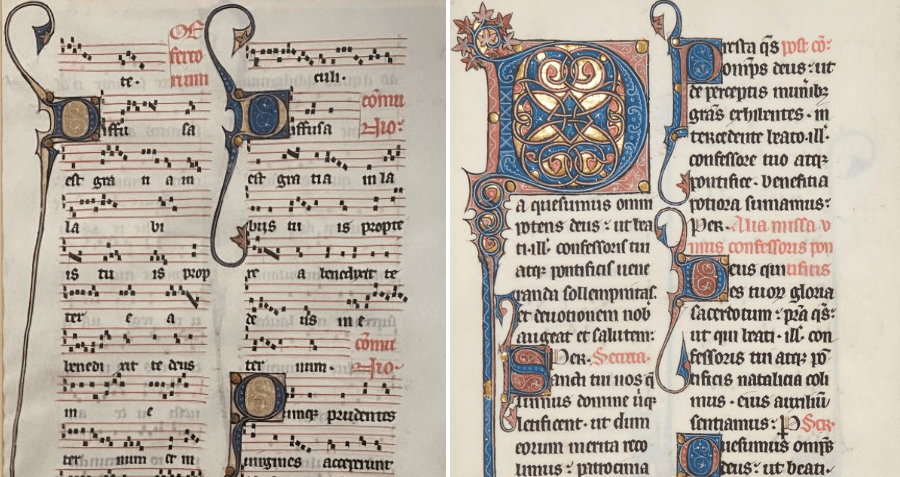 Of
ferto
te. rium
Diffu sa
est gra ti a in
la bi
is tu is prop
ter e a
benedi xit te deus
in e
ter num et in
culi.
cõmu
Diffusa nio.
est gra tia in la
bijs tu is propte
re a benedixit te
de us in e
cõmu
ter num. nio.
Quinqz prudentes
uirgines acceperunt
Da quesumus omni
potens deus: ut bea
ti. ill. confessoris tui
atqz pontificis uene
randa sollempnitas.
et deuotionem nob
augeat et salutem:
Per. Secreta.
Sancti tui nos q̃
sumus domne
letificent. ut dum
eorum merita reco
limus: patrocinia
Presta q̃s post cõ:
omps deus: ut
de perceptis munibz
grãs exhibentes. in
tercedente beato. ill.
confessore tuo atqz
pontifice. beneficia
potiora sumamus:
Per. Alia missa v
nius confessoris pon
Deus qui tificis
es tuoꝝ gloria
sacerdotum: p̃ra q̃s:
ut qui beati. ill. con
fessoris tui atqz põ
tificis natalicia coli
mus. eius auxiliũ
sentiamus: P Secr.
Quesumus omps
deus: ut beati.